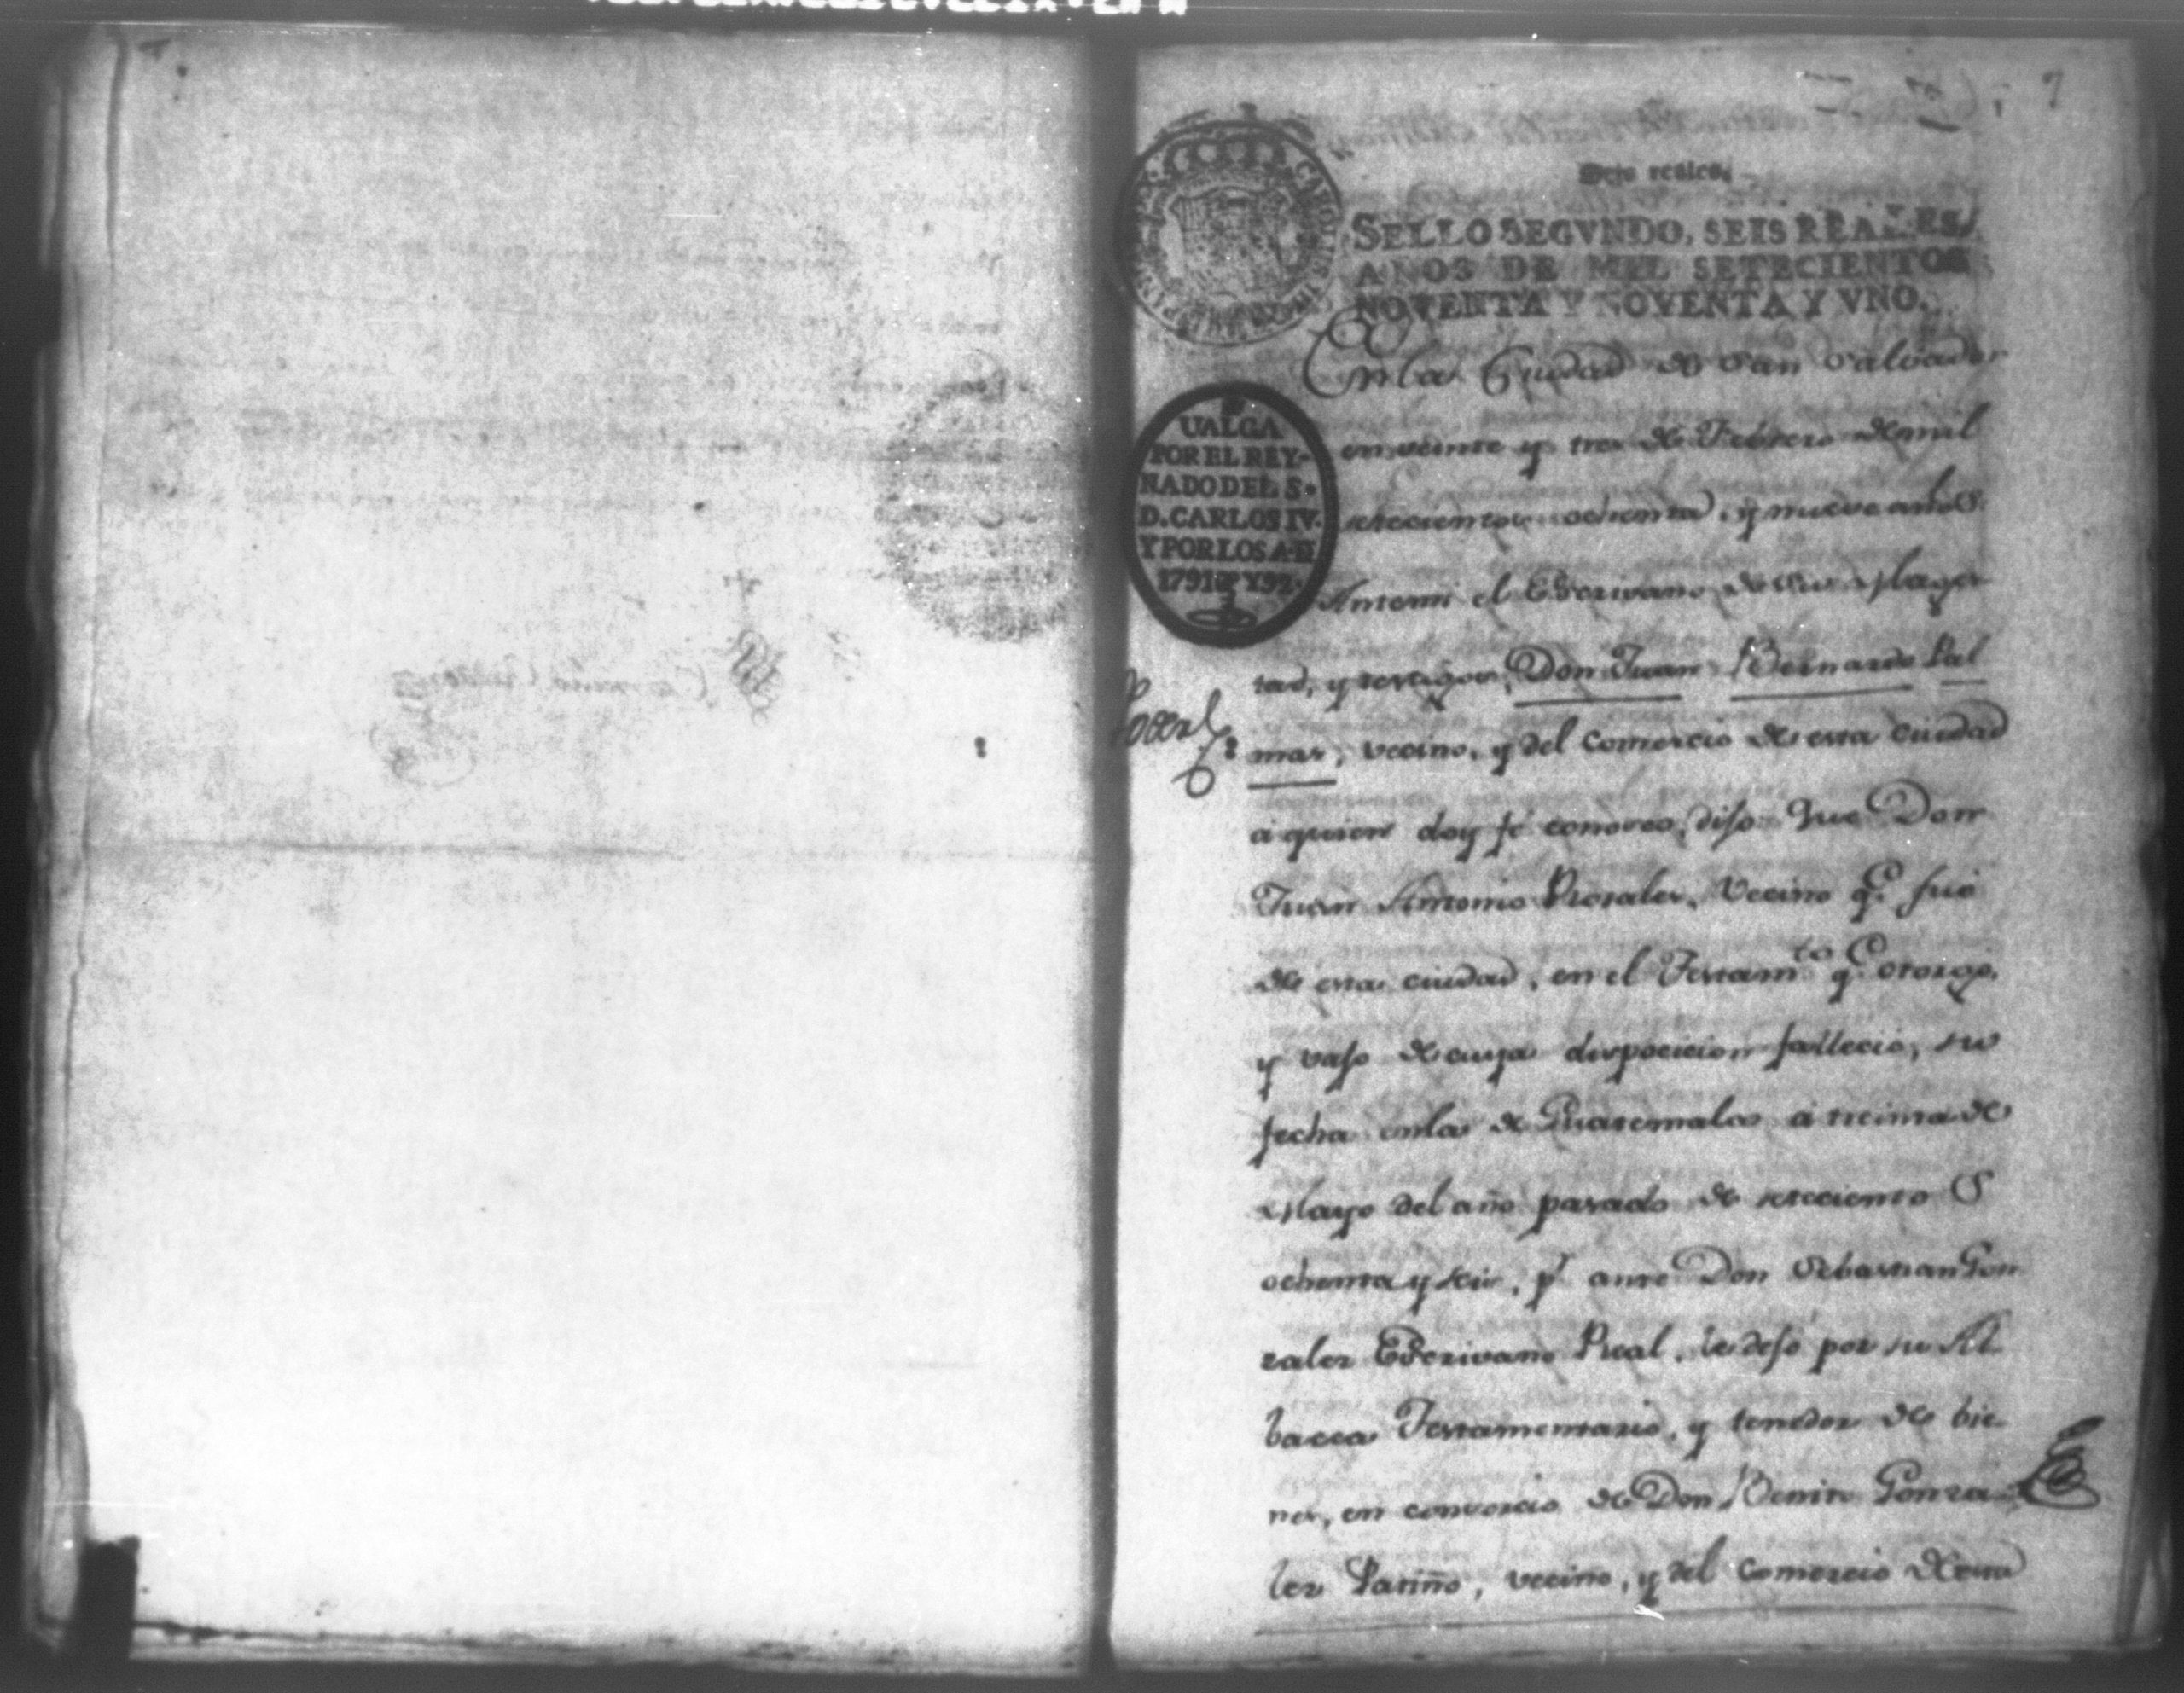 Seis reales.
SELLO SEGVNDO, SEIS REALES,
AÑOS DE MIL SETECIENTOS
NOVENTA Y NOVENTA Y VNO.
UALGA
POR EL REY-
NADO DEL S.
D. CARLOS IV.
Y POR LOS A.
1791 Y 92.
En la Ciudad de San Salvador
en veinte y tres de Febrero de mil
setecientos ochenta, y nueve años
Antemi el Escrivano de Su Mages
tad, y testigos, Don Juan Bernardo Pal
mar, vecino, y del comercio de esta ciudad
à quien doy fé conosco, dijo: Que Don
Juan Antonio Rosales, Vecino q.e fué
de esta ciudad, en el Testam.to q.e otorgó,
y vajo de cuya dispocicion falleció, su
fecha en la de Guatemala à treinta de
Mayo del año pasado de setecientos
ochenta y seis, p.r ante Don Sebastian Gon
zales Escrivano Real, le dejó por su Al
bacea Testamentario, y tenedor de bie
nes, en consorcio de Don Benito Gonza
les Patiño, vecino, y del Comercio de esta